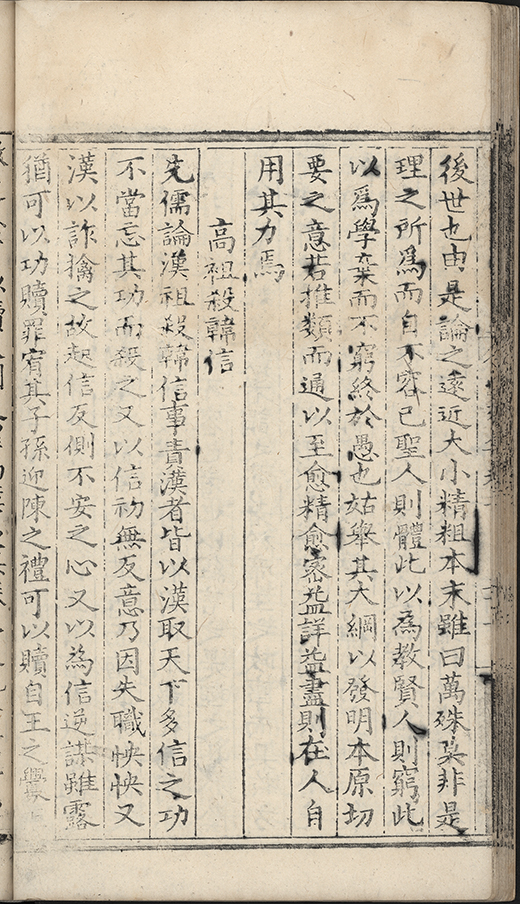 後世也由是論之遠近大小精粗本末雖曰萬殊莫非是
理之所爲而自不容已聖人則體此以爲教賢人則窮此
以爲學棄而不窮終於愚也姑舉其大綱以發明本原切
要之意若推類而通以至愈精愈密益詳益盡則在人自
用其力焉
高祖殺韓信
先儒論漢祖殺韓信事責漢者皆以漢取天下多信之功
不當忘其功而殺之又以信初無反意乃因失職怏怏又
漢以詐擒之故起信反側不安之心又以為信逆謀雖露
猶可以功贖罪宥其子孫迎陳之禮可以贖自王之釁